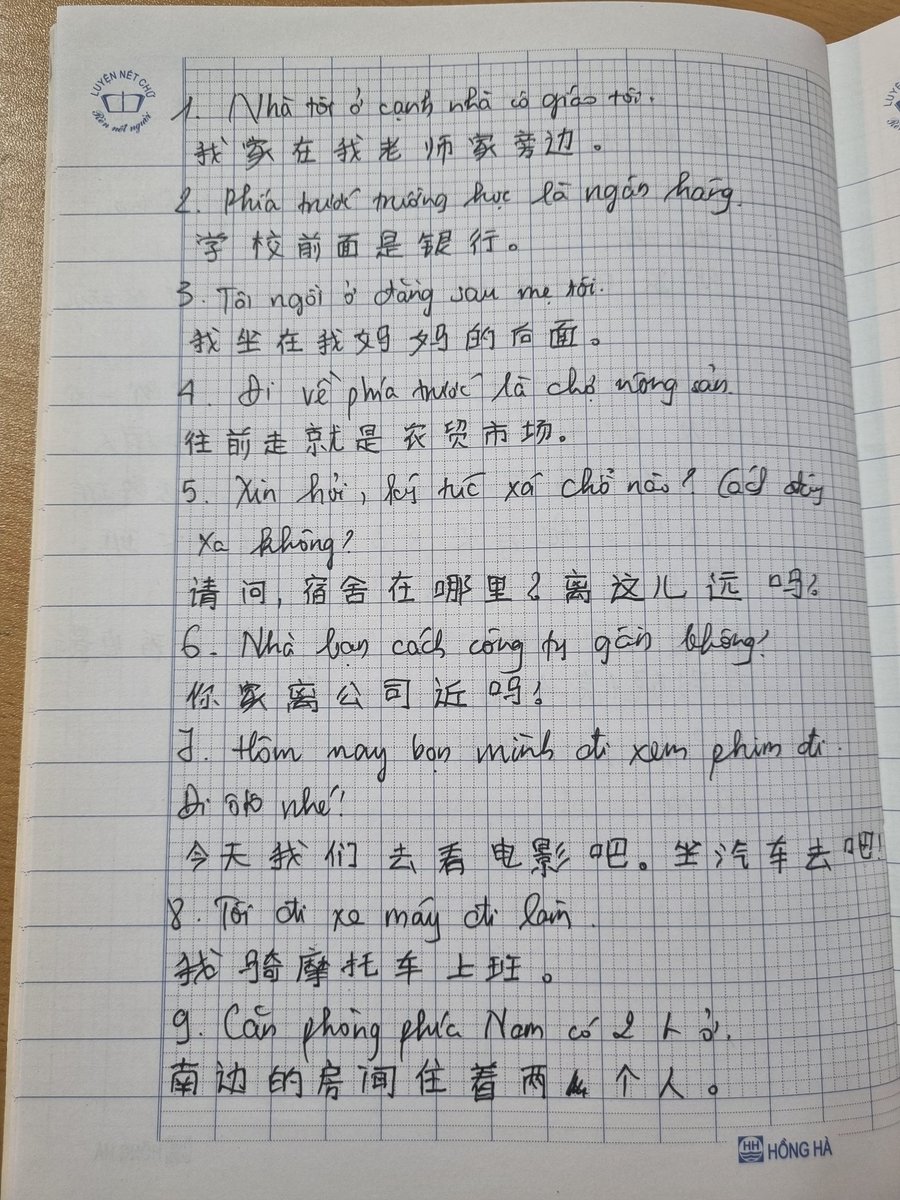 LUYỆN NÉT CHỮ
Rèn nét người
1. Nhà tôi ở cạnh nhà cô giáo tôi.
我家在我老师家旁边。
2. Phía trước trường học là ngân hàng.
学校前面是银行。
3. Tôi ngồi ở đằng sau mẹ tôi.
我坐在我妈妈的后面。
4. Đi về phía trước là chợ nông sản.
往前走就是农贸市场。
5. Xin hỏi, ký túc xá chỗ nào? Cách đây
xa không?
请问,宿舍在哪里?离这儿远吗?
6. Nhà bạn cách công ty gần không?
你家离公司近吗?
7. Hôm nay bọn mình đi xem phim đi.
Đi ôtô nhé!
今天我们去看电影吧。坐汽车去吧!
8. Tôi đi xe máy đi làm.
我骑摩托车上班。
9. Căn phòng phía Nam có 2 ở.
南边的房间住着两个人。
HH HỒNG HÀ